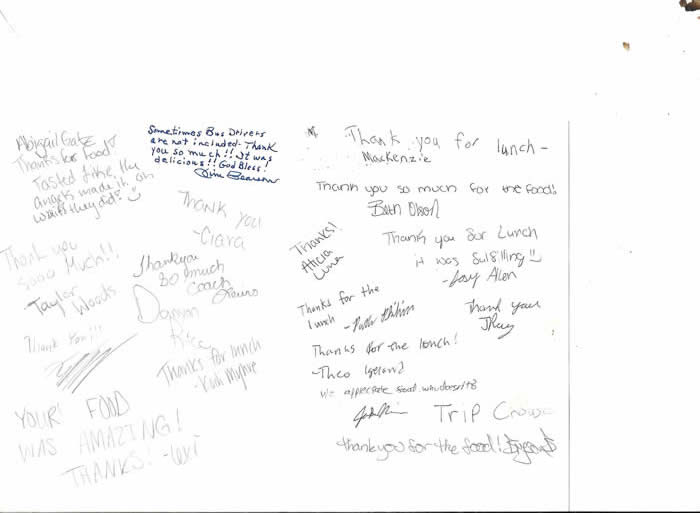 Abigail Gate
Thanks for Food
Tasted like the
angels made it oh
wait they did!
Sometimes Bus Drivers
are not included. Thank
you so much!! It was
delicious!! God Bless!
Thank you
-Ciara
Thank you
sooo Much!!
-Taylor
Woods
Thankyou
so much
Coach
Damon
Rice
Thank You!!!
Thanks for lunch
YOUR FOOD
WAS AMAZING!
THANKS! -Levi
Thank you for lunch -
Mackenzie
Thank you so much for the food!
Beth Olson
Thanks!
Alicia
Luna
Thank you for Lunch
it was fulfilling
Thanks for the
lunch
Thank you
Thanks for the lunch!
-Theo
we appreciate food who doesn't
Trip Crowe
thankyou for the food!